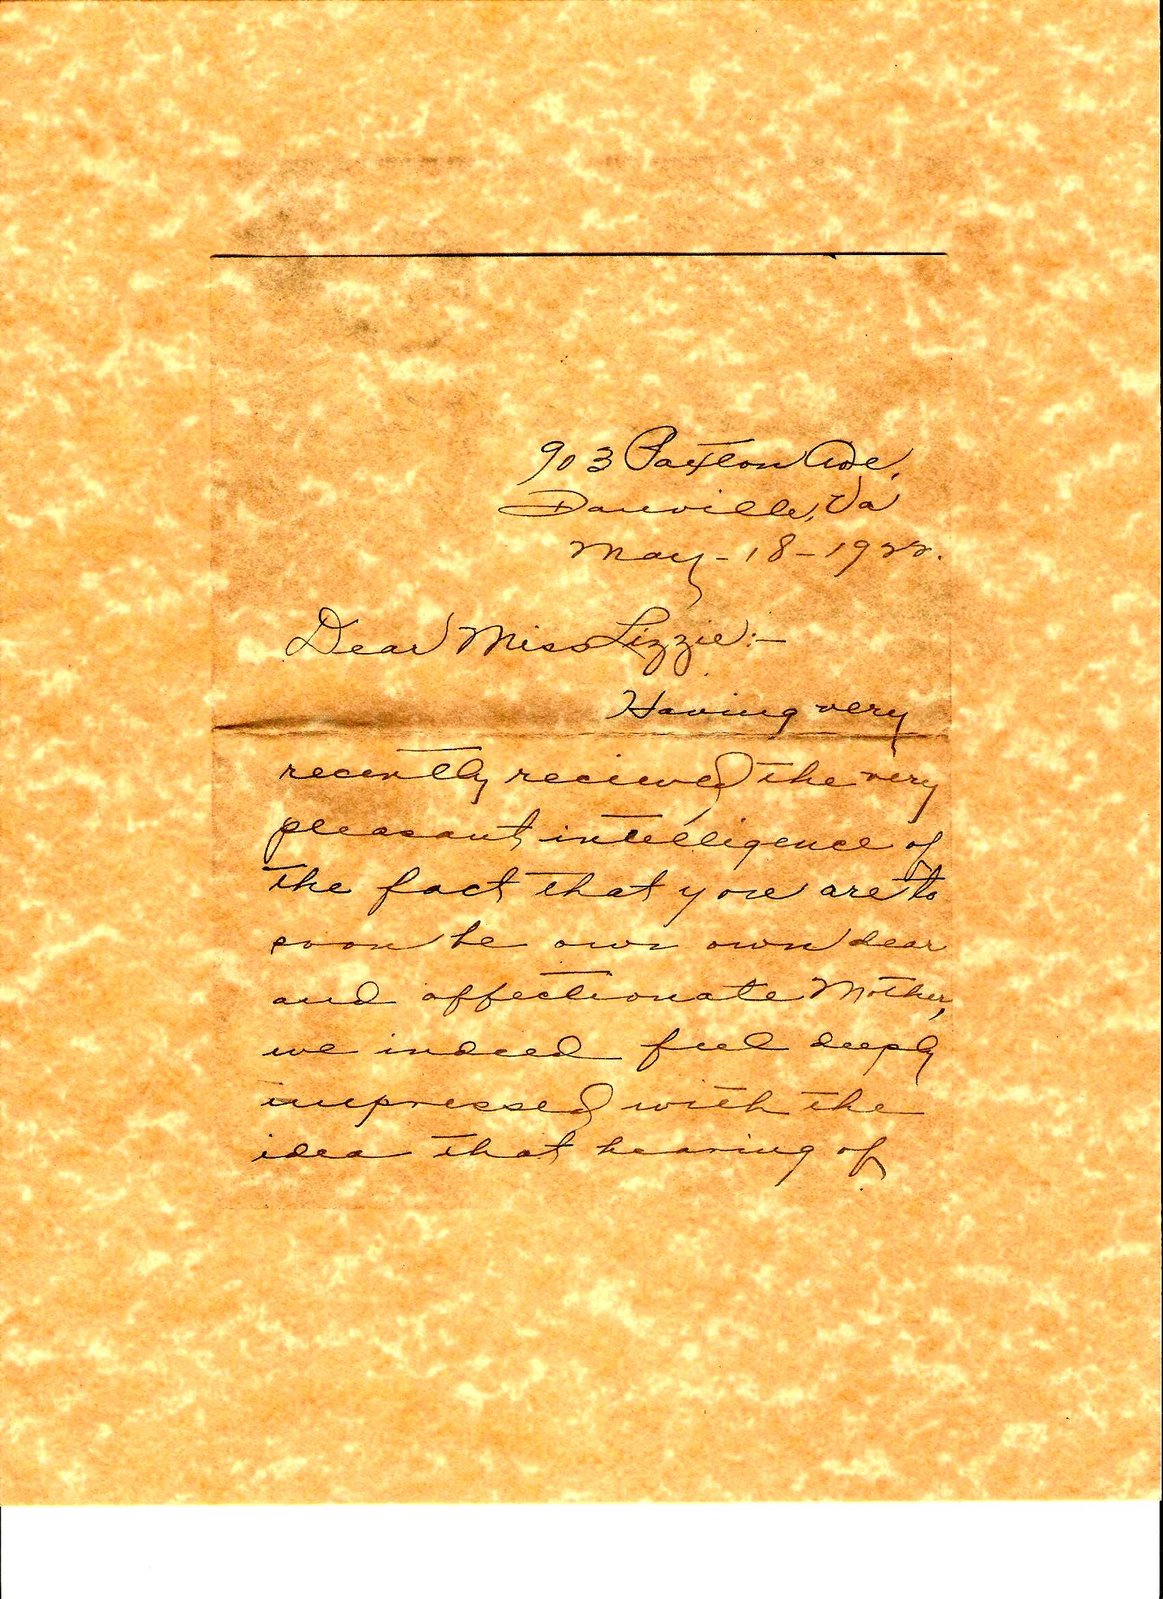 903 Paxton Ave,
Danville, Va
May - 18 - 1922.
Dear Miss Lizzie:-
Having very
recently recieved the very
pleasant intelligence of
the fact that you are to
soon be our own dear
and affectionate Mother,
we indeed feel deeply
impressed with the
idea that hearing of